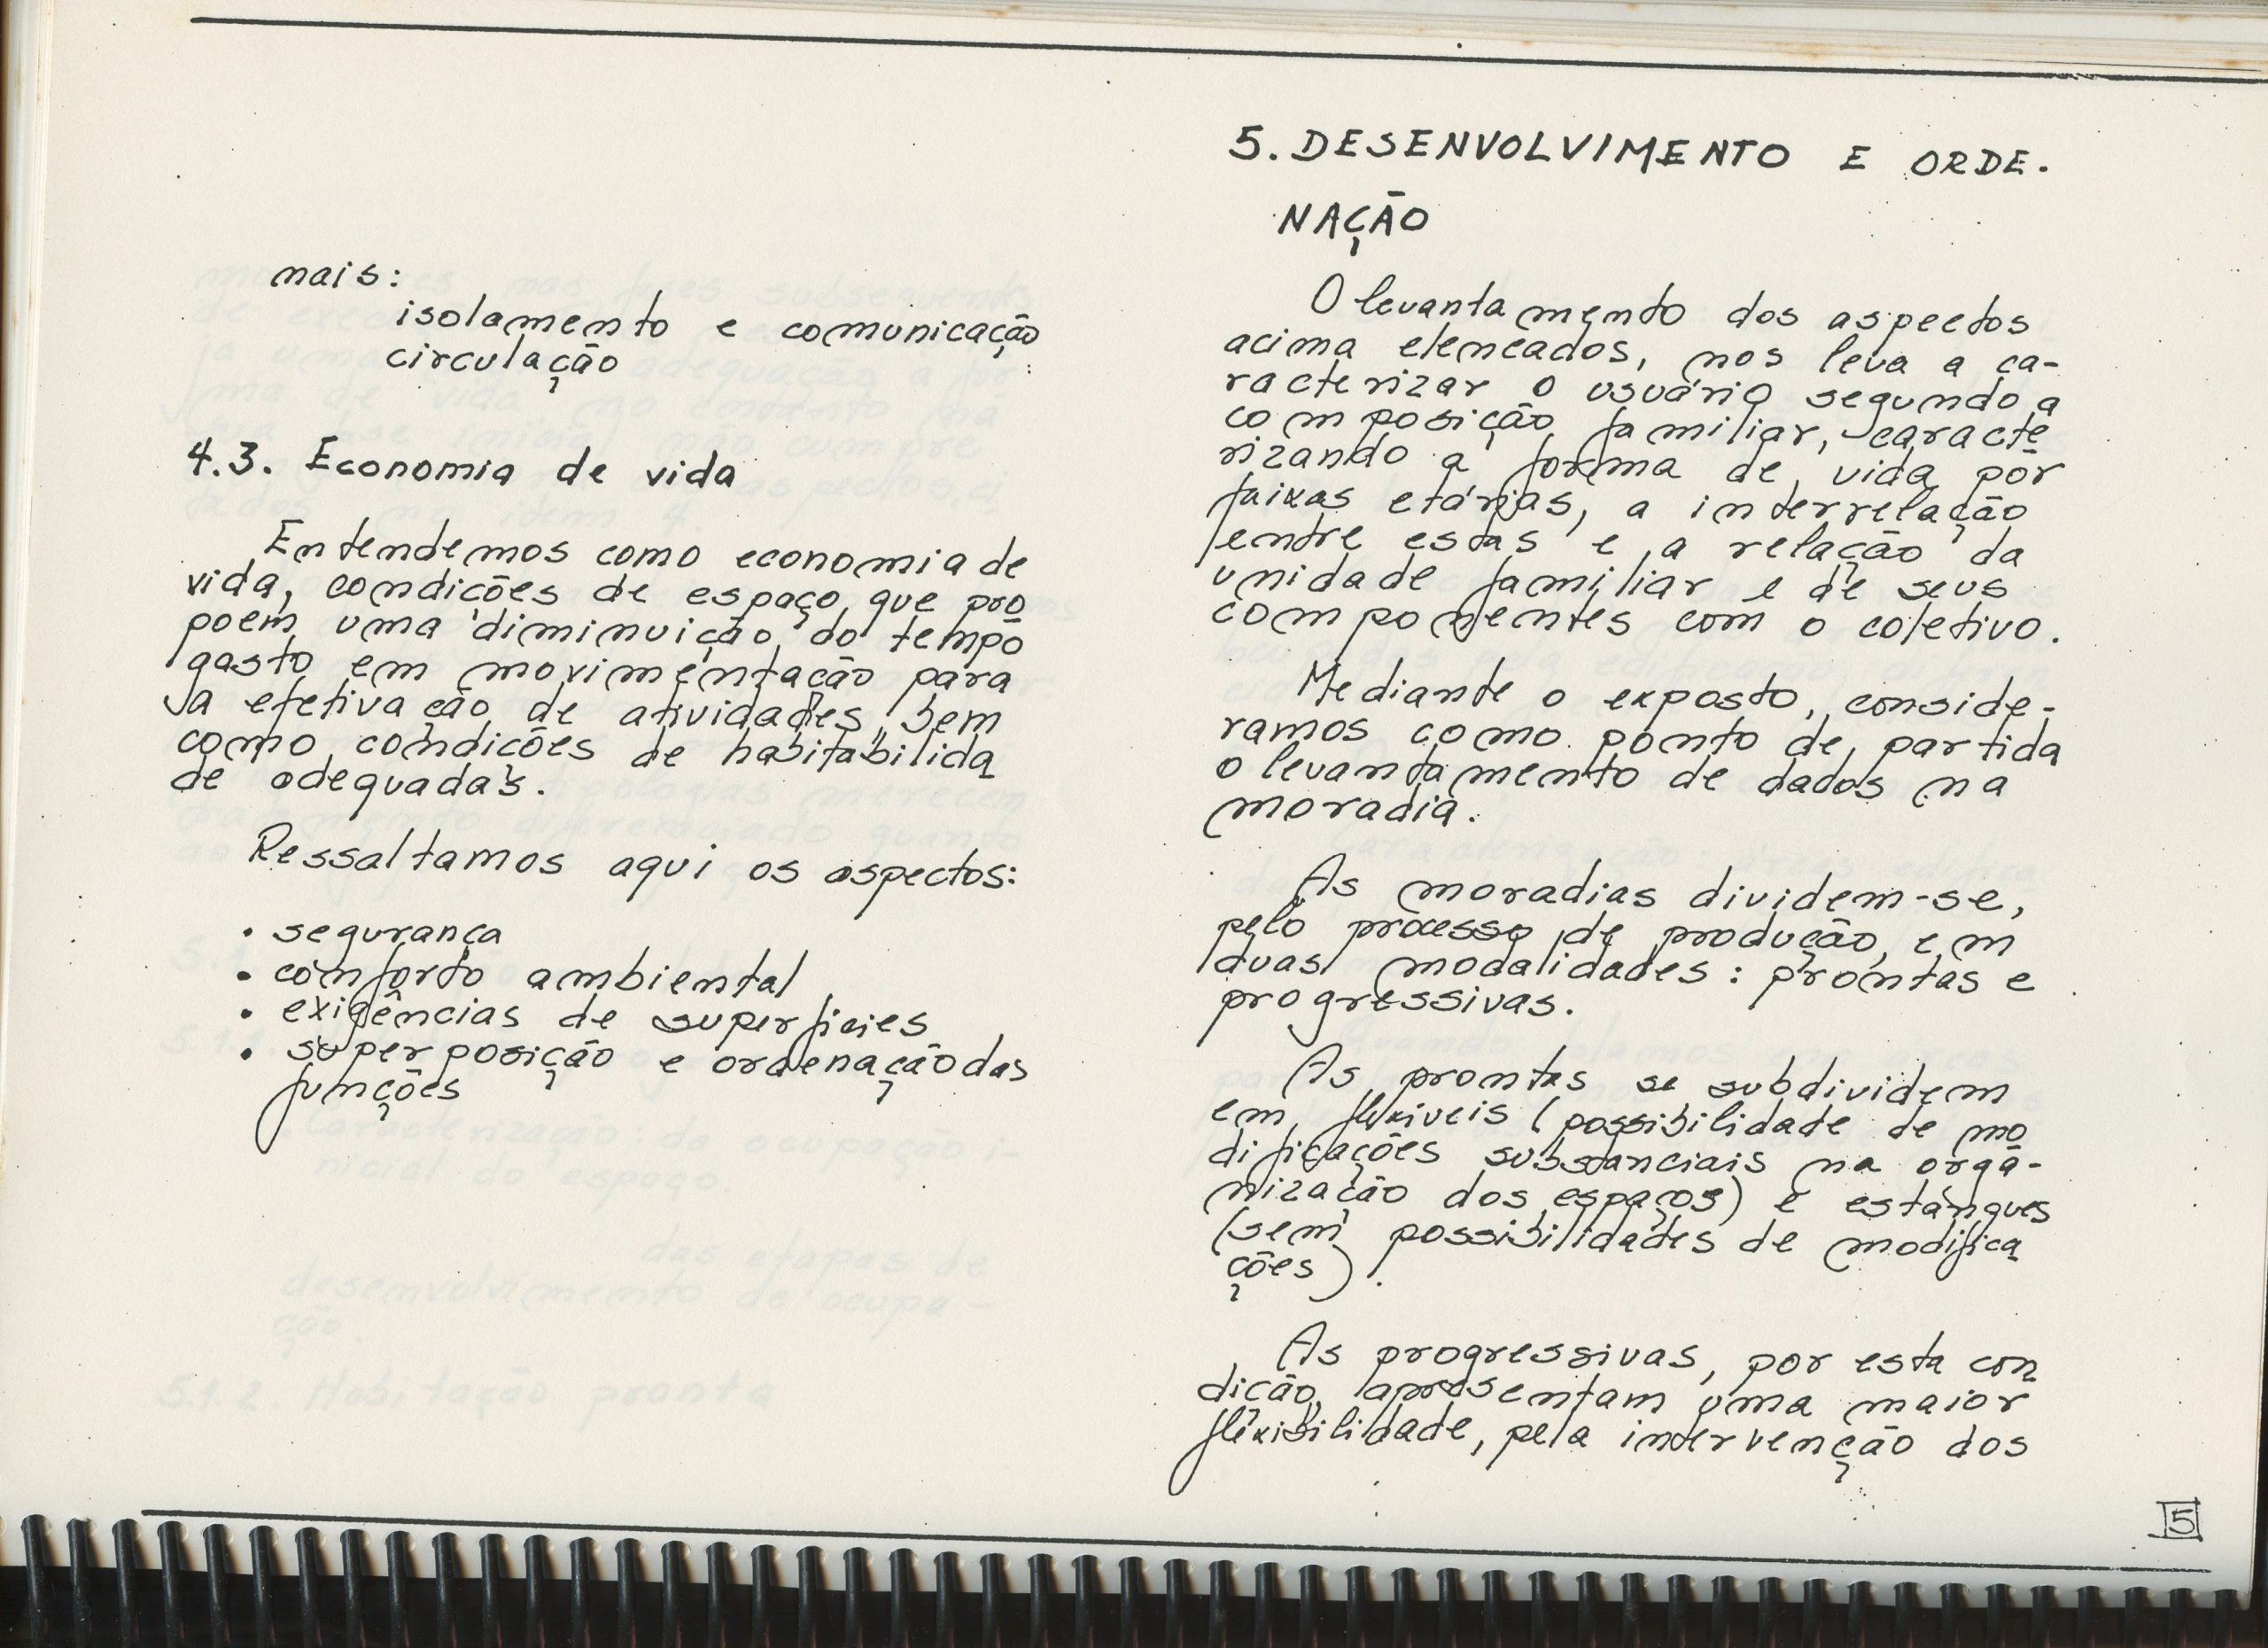 mais:
isolamento e comunicação
circulação
4.3. Economia de vida
Entendemos como economia de
vida, condições de espaço que pro
poem uma diminuição do tempo
gasto em movimentação para
a efetivação de atividades, bem
como condições de habitabilida
de adequadas.
Ressaltamos aqui os aspectos:
• segurança
• conforto ambiental
• exigências de superfícies
• superposição e ordenação das
funções
5. DESENVOLVIMENTO E ORDE-
NAÇÃO
O levantamento dos aspectos
acima elencados, nos leva a ca-
racterizar o usuário segundo a
composição familiar, caracte
rizando a forma de vida por
faixas etárias, a interrelação
entre estas e a relação da
unidade familiar e de seus
componentes com o coletivo.
Mediante o exposto, conside-
ramos como ponto de partida
o levantamento de dados na
moradia.
As moradias dividem-se,
pelo processo de produção, em
duas modalidades: prontas e
progressivas.
As prontas se subdividem
em flexiveis (possibilidade de mo
dificações substanciais na orga-
nização dos espaços) e estanques
(sem possibilidades de modifica
ções).
As progressivas, por esta con
dição, apresentam uma maior
flexibilidade, pela intervenção dos
5